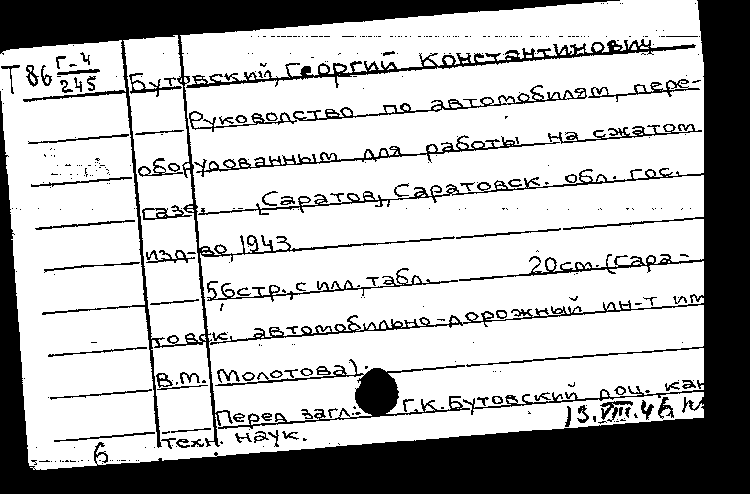 Т86 Г-4/245
Бутовский, Георгий Константинович
Руководство по автомобилям, пере-
оборудованным для работы на сжатом
газе. [Саратов], Саратовск. обл. гос.
изд-во, 1943.
56стр., с илл., табл. 20см. (Сара-
товск. автомобильно-дорожный ин-т им
В.М. Молотова).
Перед загл.: Г.К. Бутовский доц. кан
техн. наук.
13.VIII.46
6